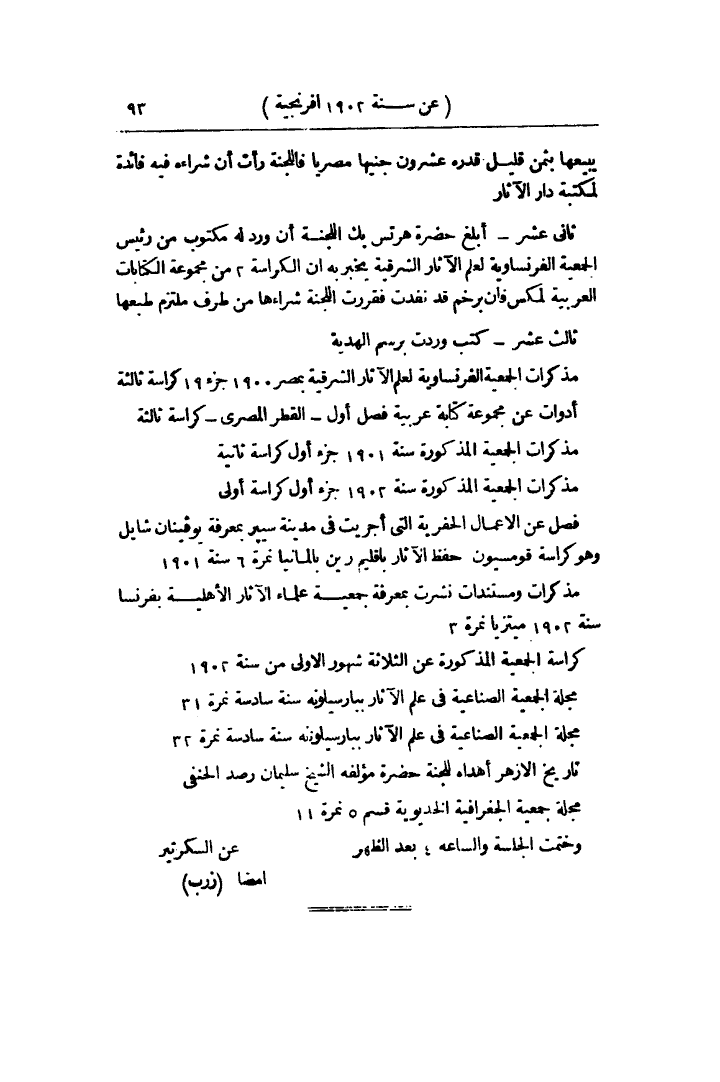 (عن ســنة ١٩٠٢ افرنجية) ٩٣
يبيعها بثمن قليل قدره عشرون جنيها مصريا فاللجنة رأت أن شراءه فيه فائدة
لمكتبة دار الآثار
ثانى عشر ــ أبلغ حضرة هرتس بك اللجنة أن ورد له مكتوب من رئيس
الجمعية الفرنساوية لعلم الآثار الشرقية يخبر به ان الكراسة ٢ من مجموعة الكتابات
العربية لمكس فأن برخم قد نفدت فقررت اللجنة شراءها من طرف ملتزم طبعها
ثالث عشر ــ كتب وردت برسم الهدية
مذكرات الجمعية الفرنساوية لعلم الآثار الشرقية بمصر ١٩٠٠ جزء ١٩ كراسة ثالثة
أدوات عن مجموعة كتابة عربية فصل أول ــ القطر المصرى ــ كراسة ثالثة
مذكرات الجمعية المذكورة سنة ١٩٠١ جزء أول كراسة ثانية
مذكرات الجمعية المذكورة سنة ١٩٠٢ جزء أول كراسة أولى
فصل عن الاعمال الحفرية التى أجريت فى مدينة سيبر بمعرفة يوڤينان شايل
وهو كراسة قومسيون حفظ الآثار باقليم رين بالمانيا نمرة ٦ سنة ١٩٠١
مذكرات ومستندات نشرت بمعرفة جمعيــة علماء الآثار الأهليــة بفرنسا
سنة ١٩٠٢ ميتزيا نمرة ٣
كراسة الجمعية المذكورة عن الثلاثة شهور الاولى من سنة ١٩٠٢
مجلة الجمعية الصناعية فى علم الآثار ببارسيلونه سنة سادسة نمرة ٣١
مجلة الجمعية الصناعية فى علم الآثار ببارسيلونه سنة سادسة نمرة ٣٢
تاريخ الازهر أهداه للجنة حضرة مؤلفه الشيخ سليمان رصد الحنفى
مجلة جمعية الجغرافية الخديوية قسم ٥ نمرة ١١
وختمت الجلسة والساعه ٤ بعد الظهر عن السكرتير
امضا (زرب)